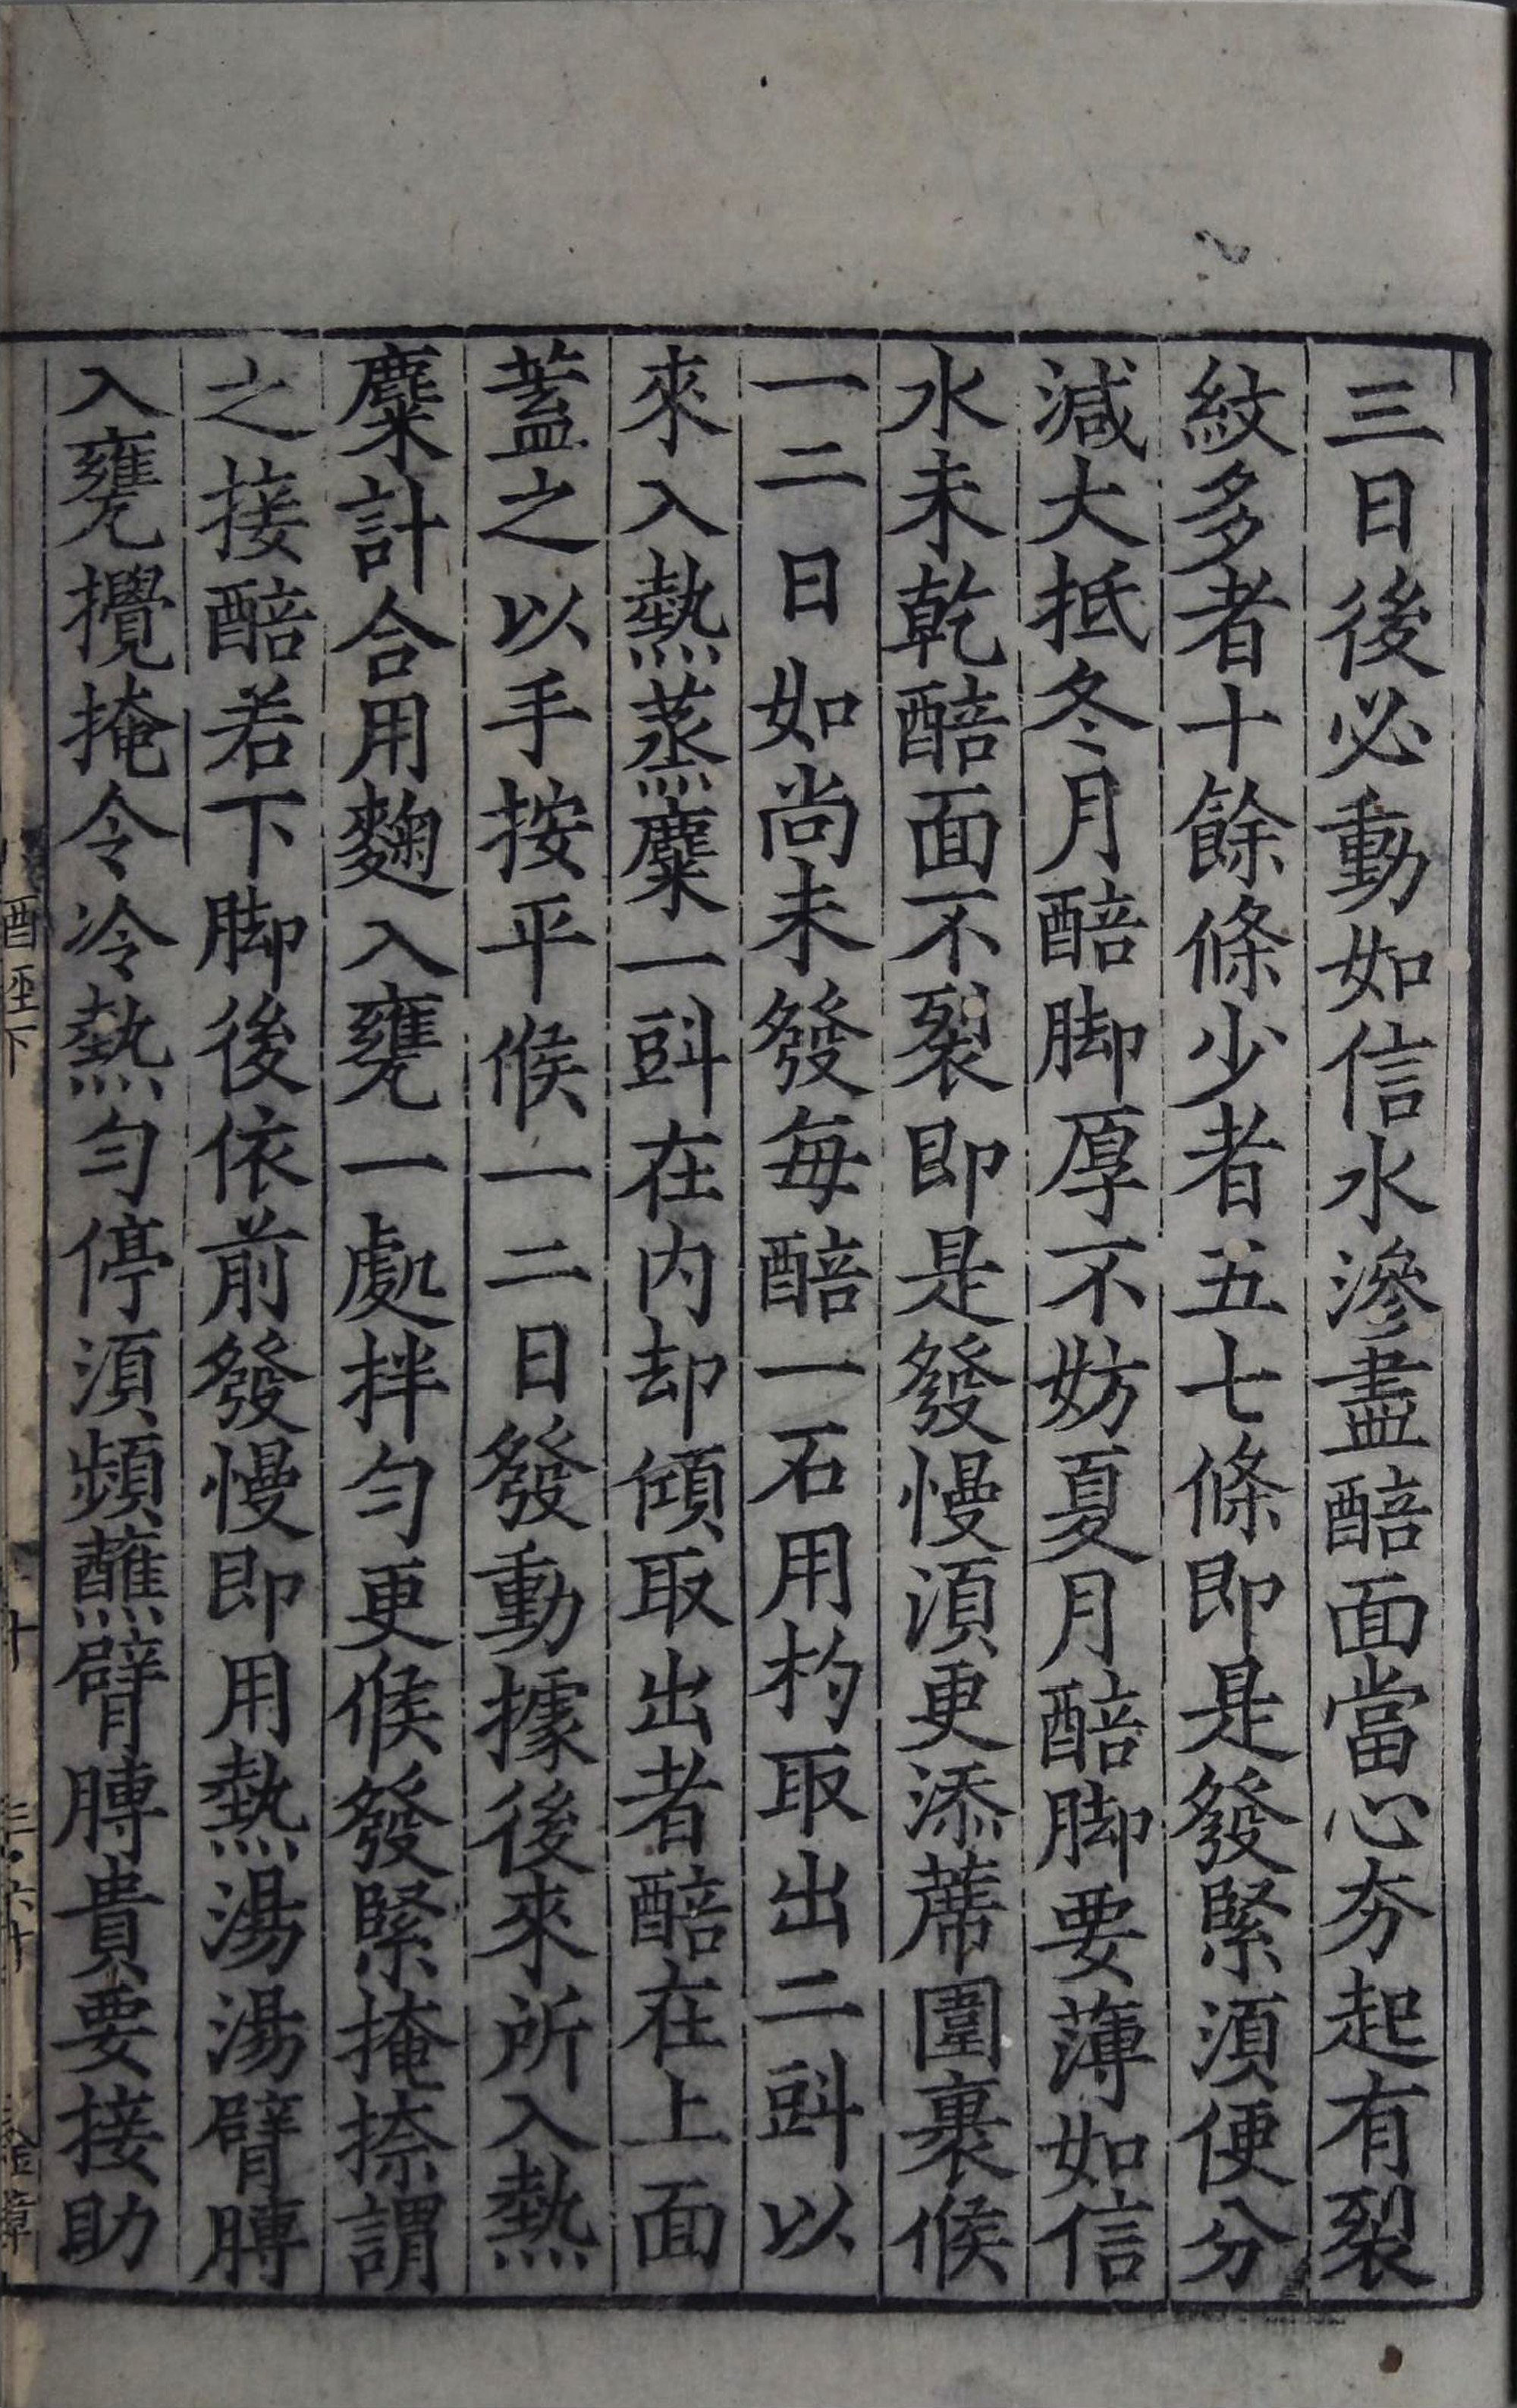 三日後必動如信水滲盡醅面當心夯起有裂
紋多者十餘條少者五七條即是發緊須便分
減大抵冬月醅脚厚不妨夏月醅脚要薄如信
水未乾醅面不裂即是發慢須更添蓆圍裹候
一二日如尚未發每醅一石用杓取出二㪷以
來入熱蒸麋一㪷在内却傾取出者醅在上面
蓋之以手按平候一二日發動據後來所入熱
麋計合用麴入甕一處拌勻更候發緊掩捺謂
之接醅若下脚後依前發慢即用熱湯湯臂膊
入甕攪掩令冷熱勻停須頻蘸臂膊貴要接助
酒經下
十